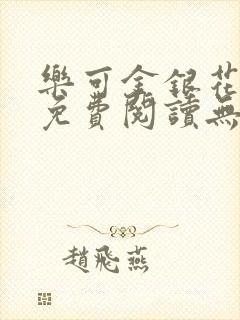 樂可金銀花
免費閱讀無
趙飛燕